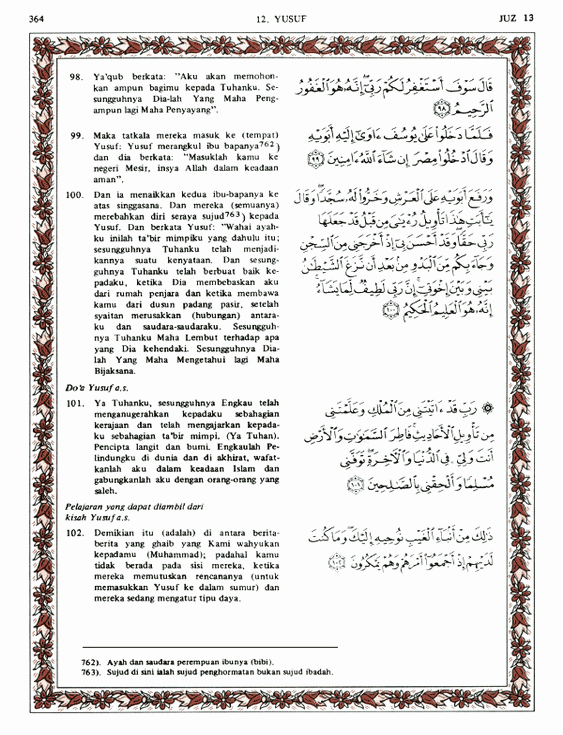 364
12. YUSUF
JUZ 13
98. Ya'qub berkata: "Aku akan memohon-
kan ampun bagimu kepada Tuhanku. Se-
sungguhnya Dia-lah Yang Maha Peng-
ampun lagi Maha Penyayang".
قَالَ سَوْفَ أَسْتَغْفِرُ لَكُمْ رَبِّىٓ إِنَّهُۥ هُوَ ٱلْغَفُورُ
ٱلرَّحِيمُ ﴿٩٨﴾
99. Maka tatkala mereka masuk ke (tempat)
Yusuf: Yusuf merangkul ibu bapanya762)
dan dia berkata: "Masuklah kamu ke
negeri Mesir, insya Allah dalam keadaan
aman".
فَلَمَّا دَخَلُوا۟ عَلَىٰ يُوسُفَ ءَاوَىٰٓ إِلَيْهِ أَبَوَيْهِ
وَقَالَ ٱدْخُلُوا۟ مِصْرَ إِن شَآءَ ٱللَّهُ ءَامِنِينَ ﴿٩٩﴾
100. Dan ia menaikkan kedua ibu-bapanya ke
atas singgasana. Dan mereka (semuanya)
merebahkan diri seraya sujud763) kepada
Yusuf. Dan berkata Yusuf: "Wahai ayah-
ku inilah ta'bir mimpiku yang dahulu itu;
sesungguhnya Tuhanku telah menjadi-
kannya suatu kenyataan. Dan sesung-
guhnya Tuhanku telah berbuat baik ke-
padaku, ketika Dia membebaskan aku
dari rumah penjara dan ketika membawa
kamu dari dusun padang pasir, setelah
syaitan merusakkan (hubungan) antara-
ku dan saudara-saudaraku. Sesungguh-
nya Tuhanku Maha Lembut terhadap apa
yang Dia kehendaki. Sesungguhnya Dia-
lah Yang Maha Mengetahui lagi Maha
Bijaksana.
وَرَفَعَ أَبَوَيْهِ عَلَى ٱلْعَرْشِ وَخَرُّوا۟ لَهُۥ سُجَّدًا وَقَالَ
يَٰٓأَبَتِ هَٰذَا تَأْوِيلُ رُءْيَٰىَ مِن قَبْلُ قَدْ جَعَلَهَا
رَبِّى حَقًّا وَقَدْ أَحْسَنَ بِىٓ إِذْ أَخْرَجَنِى مِنَ ٱلسِّجْنِ
وَجَآءَ بِكُم مِّنَ ٱلْبَدْوِ مِنۢ بَعْدِ أَن نَّزَغَ ٱلشَّيْطَٰنُ
بَيْنِى وَبَيْنَ إِخْوَتِىٓ إِنَّ رَبِّى لَطِيفٌ لِّمَا يَشَآءُ
إِنَّهُۥ هُوَ ٱلْعَلِيمُ ٱلْحَكِيمُ ﴿١٠٠﴾
Do'a Yusuf a.s.
101. Ya Tuhanku, sesungguhnya Engkau telah
menganugerahkan kepadaku sebahagian
kerajaan dan telah mengajarkan kepada-
ku sebahagian ta'bir mimpi. (Ya Tuhan).
Pencipta langit dan bumi. Engkaulah Pe-
lindungku di dunia dan di akhirat, wafat-
kanlah aku dalam keadaan Islam dan
gabungkanlah aku dengan orang-orang yang
saleh.
۞ رَبِّ قَدْ ءَاتَيْتَنِى مِنَ ٱلْمُلْكِ وَعَلَّمْتَنِى
مِن تَأْوِيلِ ٱلْأَحَادِيثِ فَاطِرَ ٱلسَّمَٰوَٰتِ وَٱلْأَرْضِ
أَنتَ وَلِىِّۦ فِى ٱلدُّنْيَا وَٱلْءَاخِرَةِ تَوَفَّنِى
مُسْلِمًا وَأَلْحِقْنِى بِٱلصَّٰلِحِينَ ﴿١٠١﴾
Pelajaran yang dapat diambil dari
kisah Yusuf a.s.
102. Demikian itu (adalah) di antara berita-
berita yang ghaib yang Kami wahyukan
kepadamu (Muhammad); padahal kamu
tidak berada pada sisi mereka, ketika
mereka memutuskan rencananya (untuk
memasukkan Yusuf ke dalam sumur) dan
mereka sedang mengatur tipu daya.
ذَٰلِكَ مِنْ أَنۢبَآءِ ٱلْغَيْبِ نُوحِيهِ إِلَيْكَ وَمَا كُنتَ
لَدَيْهِمْ إِذْ أَجْمَعُوٓا۟ أَمْرَهُمْ وَهُمْ يَمْكُرُونَ ﴿١٠٢﴾
762). Ayah dan saudara perempuan ibunya (bibi).
763). Sujud di sini ialah sujud penghormatan bukan sujud ibadah.